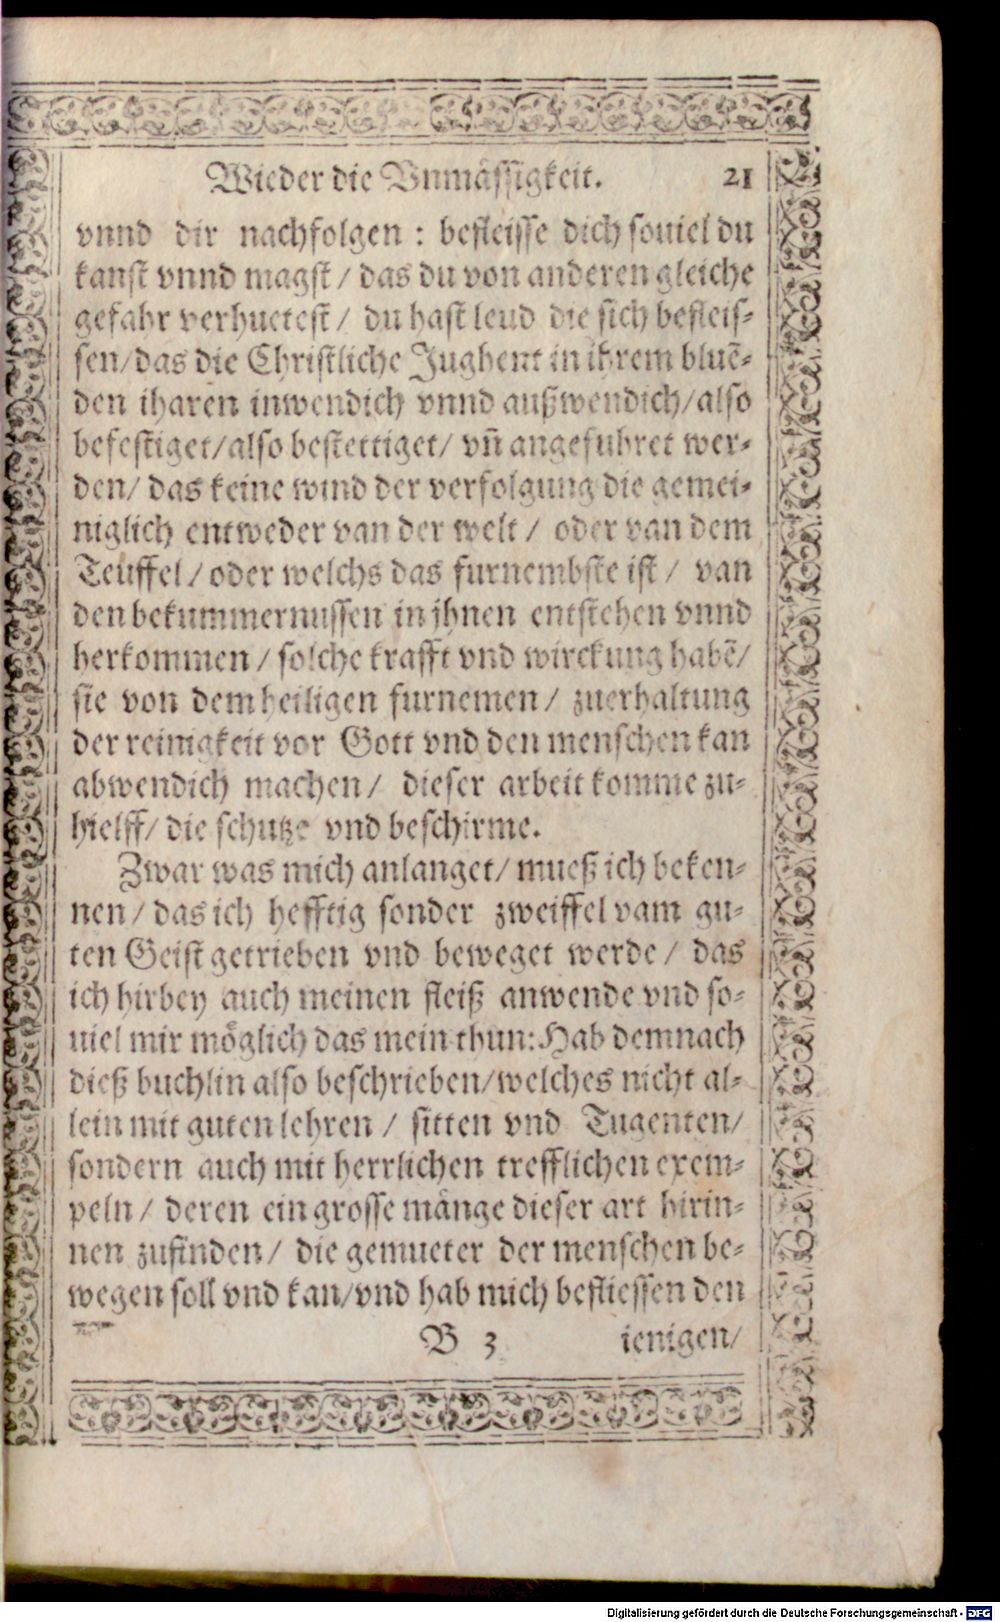 Wieder die Vnmässigkeit. 21
vnnd dir nachfolgen : befleisse dich souiel du
kanst vnnd magst / das du von anderen gleiche
gefahr verhuetest / du hast leud die sich befleis-
sen/das die Christliche Jughent in ihrem bluē-
den iharen inwendich vnnd außwendich/also
befestiget/also bestettiget/ vn̄ angefuhret wer-
den/ das keine wind der verfolgung die gemei-
niglich entweder van der welt / oder van dem
Teuffel / oder welchs das furnembste ist / van
den bekummernussen in jhnen entstehen vnnd
herkommen / solche krafft vnd wirckung habē/
sie von dem heiligen furnemen / zuerhaltung
der reinigkeit vor Gott vnd den menschen kan
abwendich machen / dieser arbeit komme zu-
hielff/ die schutze vnd beschirme.
Zwar was mich anlanget/ mueß ich beken-
nen / das ich hefftig sonder zweiffel vam gu-
ten Geist getrieben vnd beweget werde / das
ich hirbey auch meinen fleiß anwende vnd so-
uiel mir möglich das mein thun: Hab demnach
dieß buchlin also beschrieben/welches nicht al-
lein mit guten lehren / sitten vnd Tugenten/
sondern auch mit herrlichen trefflichen exem-
peln / deren ein grosse mänge dieser art hirin-
nen zufinden / die gemueter der menschen be-
wegen soll vnd kan/vnd hab mich befliessen den
B 3 ienigen/
Digitalisierung gefördert durch die Deutsche Forschungsgemeinschaft - DFG